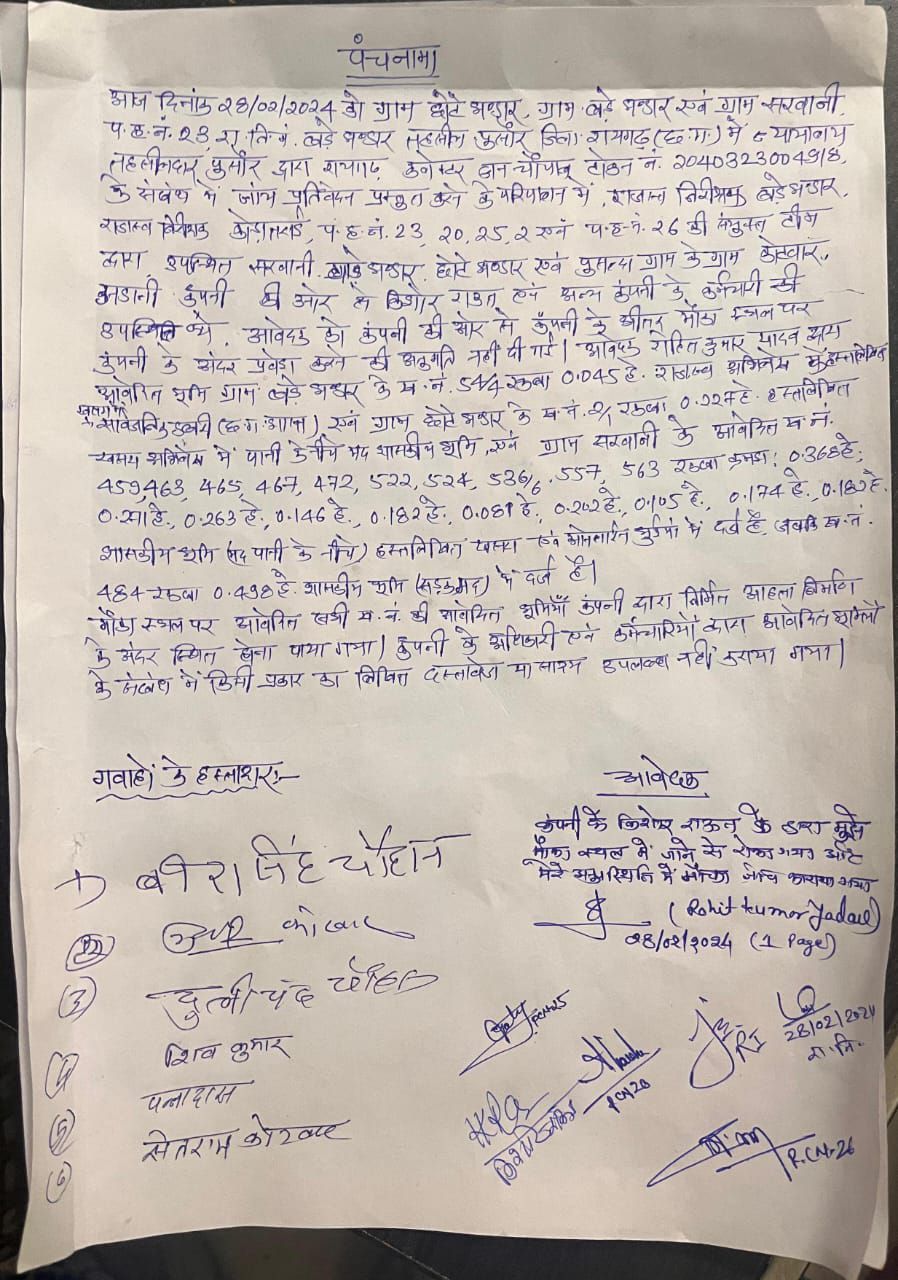 पंचनामा
आज दिनांक 28/02/2024 को ग्राम छोटे भण्डार, ग्राम बड़े भण्डार एवं ग्राम सरवानी,
प.ह.नं. 23, रा.नि.मं. बड़े भण्डार तहसील पुसौर जिला रायगढ़ (छ.ग.) में न्यायालय
तहसीलदार पुसौर द्वारा रायगढ़ कलेक्टर जन चौपाल टोकन नं. 2040323004918,
के संबंध में जांच प्रतिवेदन प्रस्तुत करने के परिपालन में, राजस्व निरीक्षक बड़े भण्डार,
राजस्व निरीक्षक कोड़ातराई, प.ह.नं. 23, 20, 25, 2 एवं प.ह.नं. 26 की संयुक्त टीम
द्वारा उपस्थित सरवानी, बड़े भण्डार, छोटे भण्डार एवं ग्राम के ग्राम कोटवार,
अडानी कंपनी की ओर से किशोर राऊत एवं अन्य कंपनी के कर्मचारी की
उपस्थिति में, आवेदक को कंपनी की ओर से कंपनी के भीतर मौका स्थल पर
कंपनी के अंदर प्रवेश करने की अनुमति नहीं दी गई। आवेदक रोहित कुमार यादव द्वारा
आवेदित भूमि ग्राम बड़े भण्डार के ख.नं. 54/4 रकबा 0.045 हे. राजस्व अभिलेख के हस्तलिखित
खसरा में सार्वजनिक डबरी (छ.ग. शासन) एवं ग्राम छोटे भण्डार के ख.नं. रकबा 0.227 हे. हस्तलिखित
खसरा अभिलेख में पानी के नीचे मद शासकीय भूमि, एवं ग्राम सरवानी के आवेदित ख.नं.
459, 463, 465, 467, 472, 522, 524, 536/6, 557, 563 रकबा क्रमशः 0.368 हे.,
0.291 हे., 0.263 हे., 0.146 हे., 0.182 हे., 0.081 हे., 0.202 हे., 0.105 हे., 0.174 हे., 0.182 हे.
शासकीय भूमि (मद पानी के नीचे) हस्तलिखित खसरा एवं ऑनलाईन भुईयां में दर्ज है, जबकि ख.नं.
484 रकबा 0.498 हे. शासकीय भूमि (सड़क मद) में दर्ज है।
मौका स्थल पर आवेदित सभी ख.नं. की आवेदित भूमियाँ कंपनी द्वारा निर्मित आहता निर्माण
के अंदर स्थित होना पाया गया। कंपनी के अधिकारी एवं कर्मचारियों द्वारा आवेदित भूमियों
के संबंध में किसी प्रकार का लिखित दस्तावेज या साक्ष्य उपलब्ध नहीं कराया गया।
गवाहों के हस्ताक्षर:-
आवेदक
कंपनी के किशोर राऊत के द्वारा मुझे
मौका स्थल में जाने से रोका गया और
मेरे अनुपस्थिति में मौका जांच कराया गया
(Rohit kumar Yadav)
28/02/2024 (1 Page)
1) बोरा सिंह चौहान
2) कोटवार
3) दुलीचंद चौहान
4) शिव कुमार
5) पन्नादास
6) सेतराम कोटवार
PCN-25
RI
28/02/2024
रा.नि.
PCN 20
P.C.N.-26